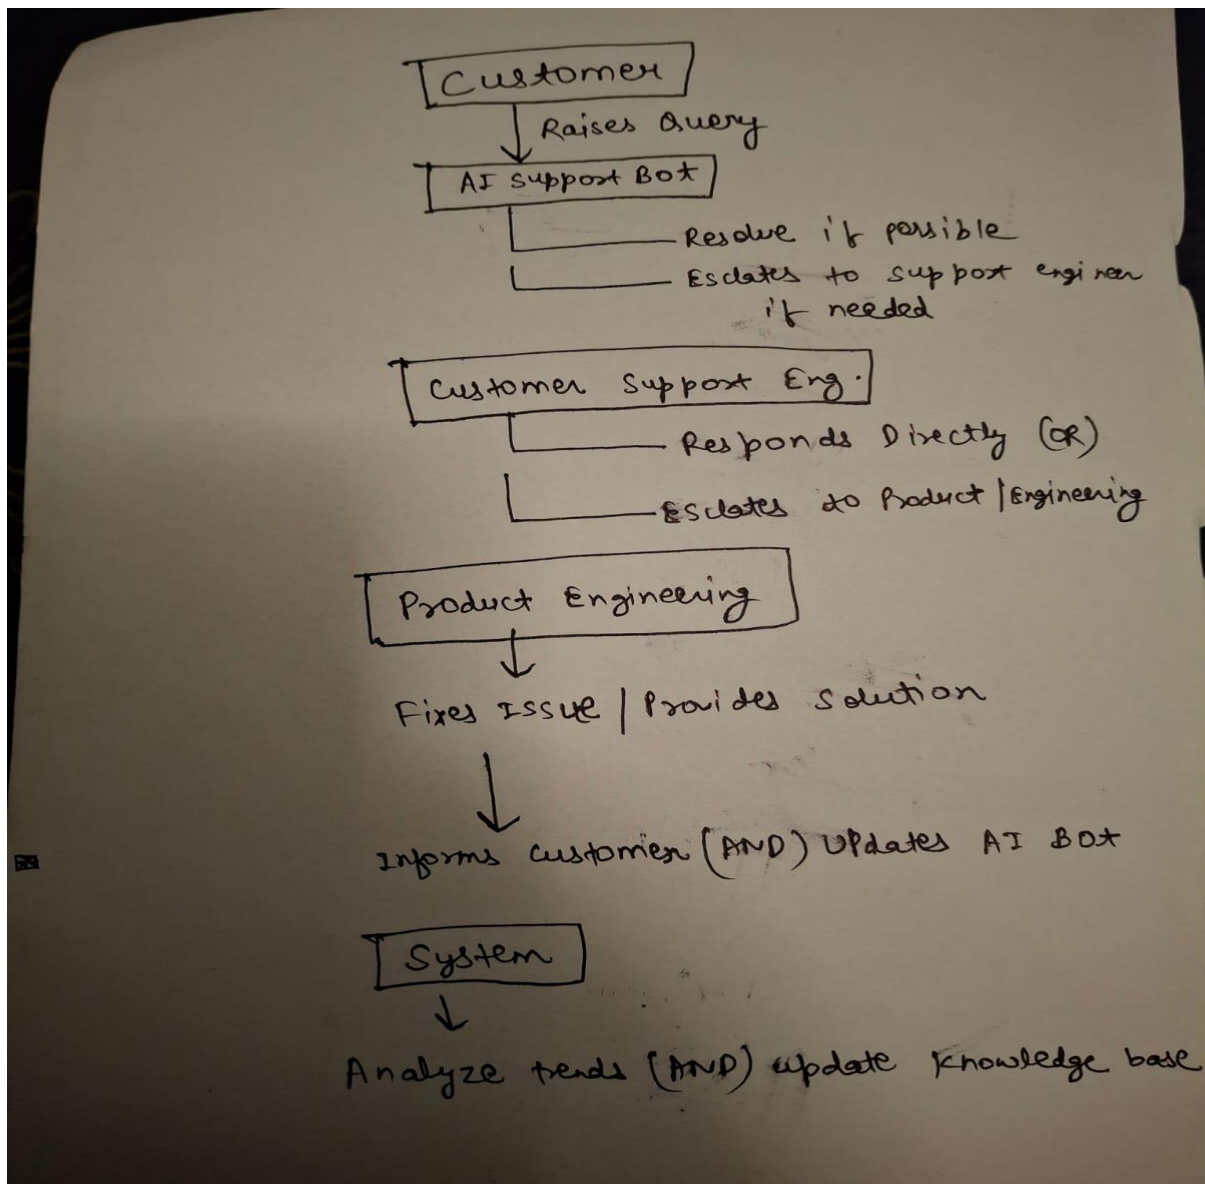 Customer
Raises Query
AI Support Bot
Resolve if possible
Esclates to support engineer
if needed
Customer Support Eng.
Responds Directly (OR)
Esclates to Product | Engineering
Product Engineering
Fixes Issue | Provides Solution
Informs Customer (AND) Updates AI Bot
System
Analyze trends (AND) update Knowledge base